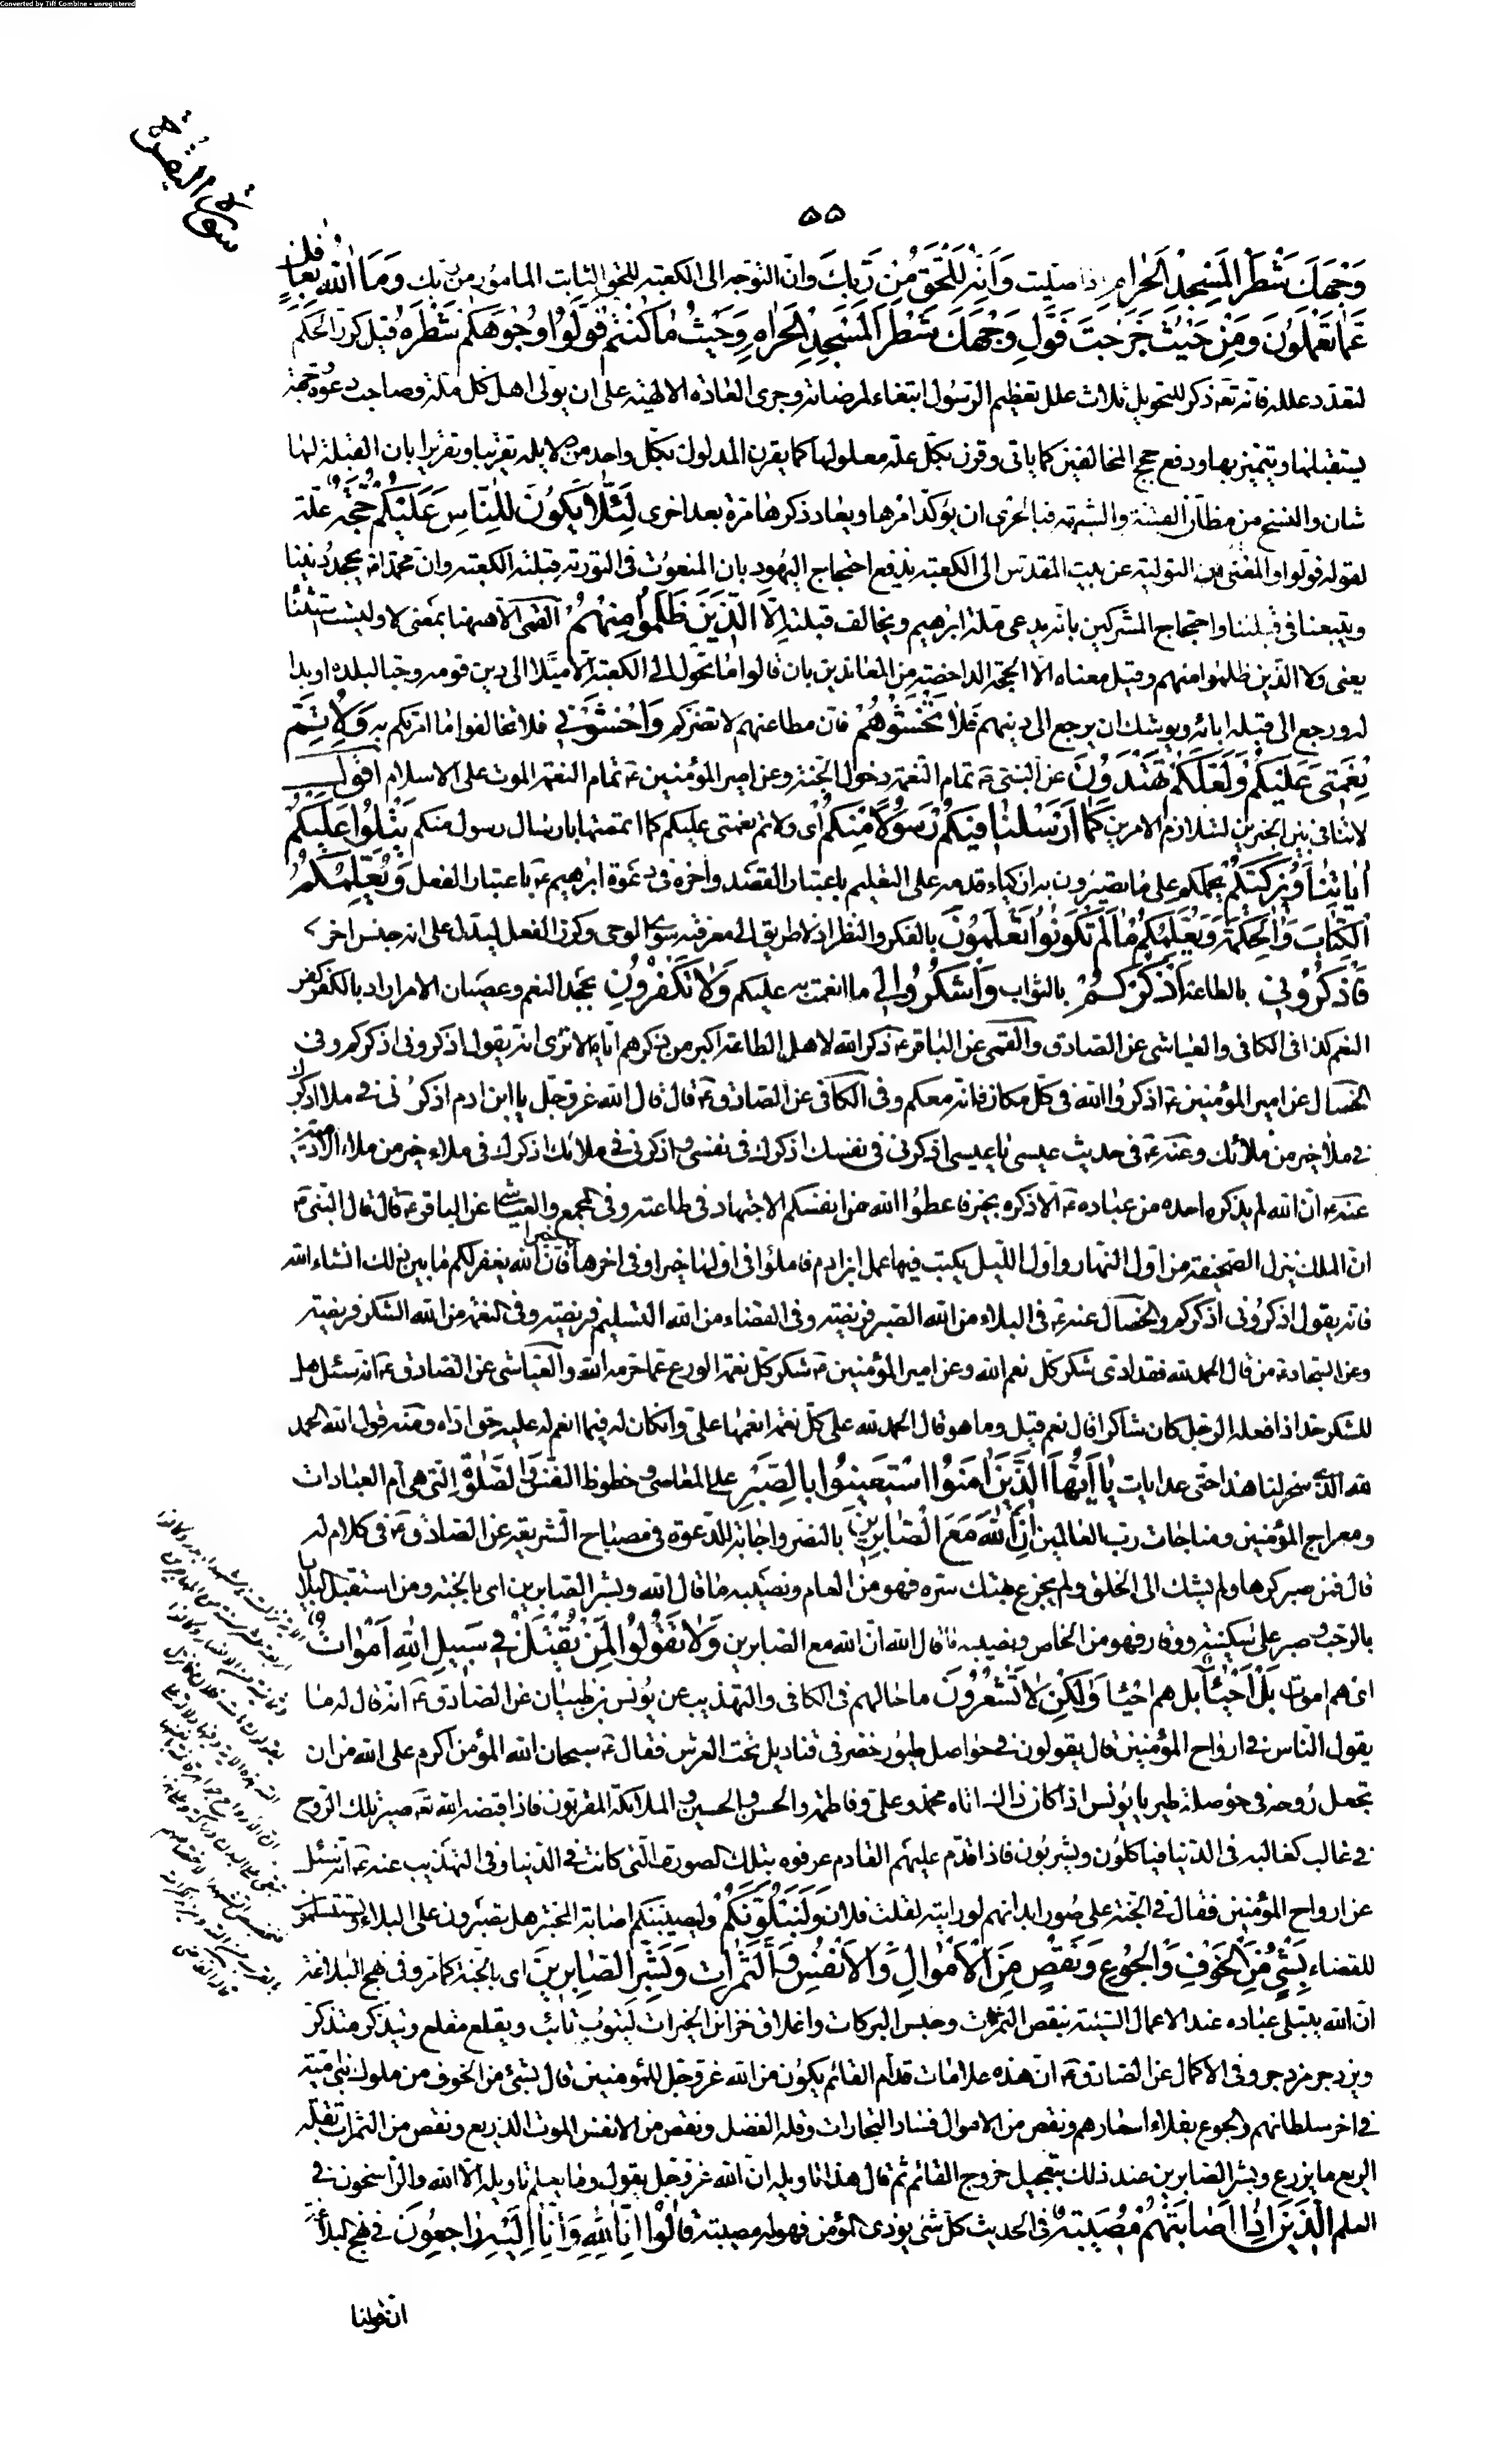 Converted by Tiff Combine - unregistered
سورة البقرة
٥٥
وَجْهَكَ شَطْرَ الْمَسْجِدِ الْحَرامِ اذا صلیت وَاِنَّهُ لَلْحَقُّ مِنْ رَبِّكَ وانّ التوجّه الی الکعبة للحقّ الثابت المأمور من ربّك وَمَا اللهُ بِغافِلٍ
عَمّا تَعْمَلُونَ وَمِنْ حَيْثُ خَرَجْتَ فَوَلِّ وَجْهَكَ شَطْرَ الْمَسْجِدِ الْحَرامِ وَحَيْثُ ما كُنْتُمْ فَوَلُّوا وُجُوهَكُمْ شَطْرَهُ قیل کرّر الحکم
لتعدّد علله فانّه تعه ذکر للتحویل ثلاث علل تعظیم الرّسول ابتغاء لمرضاته وجری العادة الالهیّة علی ان یولّی اهل کلّ ملّة وصاحب دعوة جهة
یستقبلها ویتمیّز بها ودفع حجج المخالفین کما یاتی وقرن بکلّ علّة معلولها کما یقرن المدلول بکلّ واحد من دلایله تقریبا وتقریرا بان القبلة لها
شان والنسخ من مظانّ الفتنة والشبهة فبالحری ان یؤکّد امرها ویعاد ذکرها مرّة بعد اخری لِئَلّا يَكُونَ لِلنّاسِ عَلَيْكُمْ حُجَّةٌ علّة
لقوله فولّوا والمعنی انّ التولیة عن بیت المقدّس الی الکعبة یدفع احتجاج الیهود بان المنعوت فی التوریة قبلته الکعبة وانّ محمّدا ص یجحد دیننا
ویتبعنا فی قبلتنا واحتجاج المشرکین بانّه یدعی ملّة ابرهیم ویخالف قبلته اِلَّا الَّذينَ ظَلَمُوا مِنْهُمْ القمّی الّا ههنا بمعنی لا ولیست استثناء
یعنی ولا الّذین ظلموا منهم وقیل معناه الّا الحجّة الداحضة من المعاندین بان قالوا ما تحوّل الی الکعبة الّا میلا الی دین قومه وحبا لبلده او بدا
له ورجع الی قبلة ابائه ویوشك ان یرجع الی دینهم فَلا تَخْشَوْهُمْ فانّ مطاعنهم لا تضرّکم وَاخْشَوْني فلا تخالفوا ما امرتکم به وَلِاُتِمَّ
نِعْمَتي عَلَيْكُمْ وَلَعَلَّكُمْ تَهْتَدُونَ عن النبیّ ص تمام النعمة دخول الجنّة وعن امیر المؤمنین ع تمام النعمة الموت علی الاسلام اقول
لا تنافی بین الخبرین لتلازم الامرین كَما اَرْسَلْنا فيكُمْ رَسُولًا مِنْكُمْ ای ولاتم نعمتی علیکم کما اتممتها بارسال رسول منکم يَتْلُوا عَلَيْكُمْ
اياتِنا وَيُزَكّيكُمْ یحملکم علی ما تصیرون به ازکیاء قدّمه علی التعلیم باعتبار القصد واخّره فی دعوة ابرهیم ع باعتبار الفعل وَيُعَلِّمُكُمُ
الْكِتابَ وَالْحِكْمَةَ وَيُعَلِّمُكُمْ ما لَمْ تَكُونُوا تَعْلَمُونَ بالفکر والنظر اذ لا طریق الی معرفته سوی الوحی وکرّر الفعل لیدلّ علی انه جنس اخر
فَاذْكُرُوني بالطاعة اَذْكُرْكُمْ بالثواب وَاشْكُرُوا لي ما انعمت به علیکم وَلا تَكْفُرُونِ بجحد النعم وعصیان الامر اراد بالکفر کفر
النعم کذا فی الکافی والعیاشی عن الصادق والقمّی عن الباقر ع ذکر الله لاهل الطاعة اکبر من ذکرهم ایّاه الا تری انه یقول اذکرونی اذکرکم وفی
الخصال عن امیر المؤمنین ع اذکروا الله فی کلّ مکان فانّه معکم وفی الکافی عن الصادق ع قال قال الله عزّ وجلّ یا ابن ادم اذکرنی فی ملأ اذکرك
فی ملأ خیر من ملائك وعنه ع فی حدیث عیسی یا عیسی اذکرنی فی نفسك اذکرك فی نفسی واذکرنی فی ملائك اذکرك فی ملاء خیر من ملاء الادمیّین
عنه ع انّ الله لم یذکره احد من عباده الّا ذکره بخیر فاعطوا الله من انفسکم الاجتهاد فی طاعته وفی المجمع والعیاشی عن الباقر ع قال قال النبیّ ص
انّ الملك ینزل الصحیفة من اوّل النهار واوّل اللّیل یکتب فیها عمل ابن ادم فاملؤا فی اولها خیرا وفی اخرها خیرا فانّ الله یغفر لکم ما بین ذلك انشاء الله
فانه یقول اذکرونی اذکرکم والخصال عنه ع فی البلاء من الله الصبر فریضة وفی القضاء من الله التسلیم فریضة وفی النعمة من الله الشکر فریضة
وعن السجاد ع من قال الحمد لله فقد ادّی شکر کلّ نعم الله وعن امیر المؤمنین ع شکر کلّ نعمة الورع عمّا حرّمه الله والعیّاشی عن الصادق ع انّه سئل هل
للشکر حدّ اذا فعله الرجل کان شاکرا قال نعم قیل وما هو قال الحمد لله علی کلّ نعمة انعمها علیّ وان کان له فیما انعم له علیه حقّ ادّاه ومنه قول الله الحمد
لله الّذی سخّر لنا هذا حتّی عدّ ایات يا اَيُّهَا الَّذينَ امَنُوا اسْتَعينُوا بِالصَّبْرِ علی المعاصی وحظوظ النفس وَالصَّلوةِ الّتی هی امّ العبادات
ومعراج المؤمنین ومناجات ربّ العالمین اِنَّ اللهَ مَعَ الصّابِرينَ بالنصر واجابة الدّعوة فی مصباح الشریعة عن الصادق ع فی کلام له
قال فمن صبر کرها ولم یشك الی الخلق ولم یجزع بهتك ستره فهو من العام ونصیبه ما قال الله وبشّر الصّابرین ای بالجنّة ومن استقبل البلایا
بالرحب وصبر علی سکینة ووقار فهو من الخاص ونصیبه ما قال الله انّ الله مع الصابرین وَلا تَقُولُوا لِمَنْ يُقْتَلُ في سَبيلِ اللهِ اَمْواتٌ
ای هم اموت بَلْ اَحْياءٌ بل هم احیا وَلكِنْ لا تَشْعُرُونَ ما حالهم فی الکافی والتهذیب عن یونس بن ظبیان عن الصادق ع انه قال له ما
یقول الناس فی ارواح المؤمنین قال یقولون فی حواصل طیور خضر فی قنادیل تحت العرش فقال ع سبحان الله المؤمن اکرم علی الله من ان
تجعل روحه فی حوصلة طیر یا یونس اذا کان ذلك اتاه محمّد وعلیّ وفاطمة والحسن والحسین والملائکة المقرّبون فاذا قبضه الله تعه صیّر تلك الرّوح
فی قالب کقالبه فی الدّنیا فیاکلون ویشربون فاذا قدم علیهم القادم عرفوه بتلك الصورة الّتی کانت فی الدّنیا وفی التهذیب عنه ع انه سئل
عن ارواح المؤمنین فقال فی الجنّة علی صور ابدانهم لو رایته لقلت فلان وَلَنَبْلُوَنَّكُمْ ولنصیبنّکم اصابة المختبر هل تصبرون علی البلاء وتستسلمون
للقضاء بِشَيْءٍ مِنَ الْخَوْفِ وَالْجُوعِ وَنَقْصٍ مِنَ الْاَمْوالِ وَالْاَنْفُسِ وَالثَّمَراتِ وَبَشِّرِ الصّابِرينَ ای بالجنّة کما مرّ وفی نهج البلاغة
انّ الله یبتلی عباده عند الاعمال السّیئة بنقص الثمرات وحبس البرکات واغلاق خزائن الخیرات لیتوب تائب ویقلع مقلع ویتذکّر متذکّر
ویزدجر مزدجر وفی الاکمال عن الصادق ع انّ هذه علامات قدّام القائم یکون من الله عزّ وجلّ للمؤمنین قال بشیء من الخوف من ملوك بنی امیّة
فی اخر سلطانهم والجوع بغلاء اسعارهم ونقص من الاموال فساد التجارات وقلّة الفضل ونقص من الانفس الموت الذریع ونقص من الثمرات بقلّة
الریع ما یزرع وبشّر الصابرین عند ذلك بتعجیل خروج القائم ثمّ قال هذا تاویله انّ الله عزّ وجلّ یقول وما یعلم تاویله الّا الله والراسخون فی
العلم اَلَّذينَ اِذا اَصابَتْهُمْ مُصيبَةٌ فی الحدیث کلّ شیء یوذی المؤمن فهو له مصیبة قالُوا اِنّا لِلّهِ وَاِنّا اِلَيْهِ راجِعُونَ فی نهج البلاغة
انّ قولنا